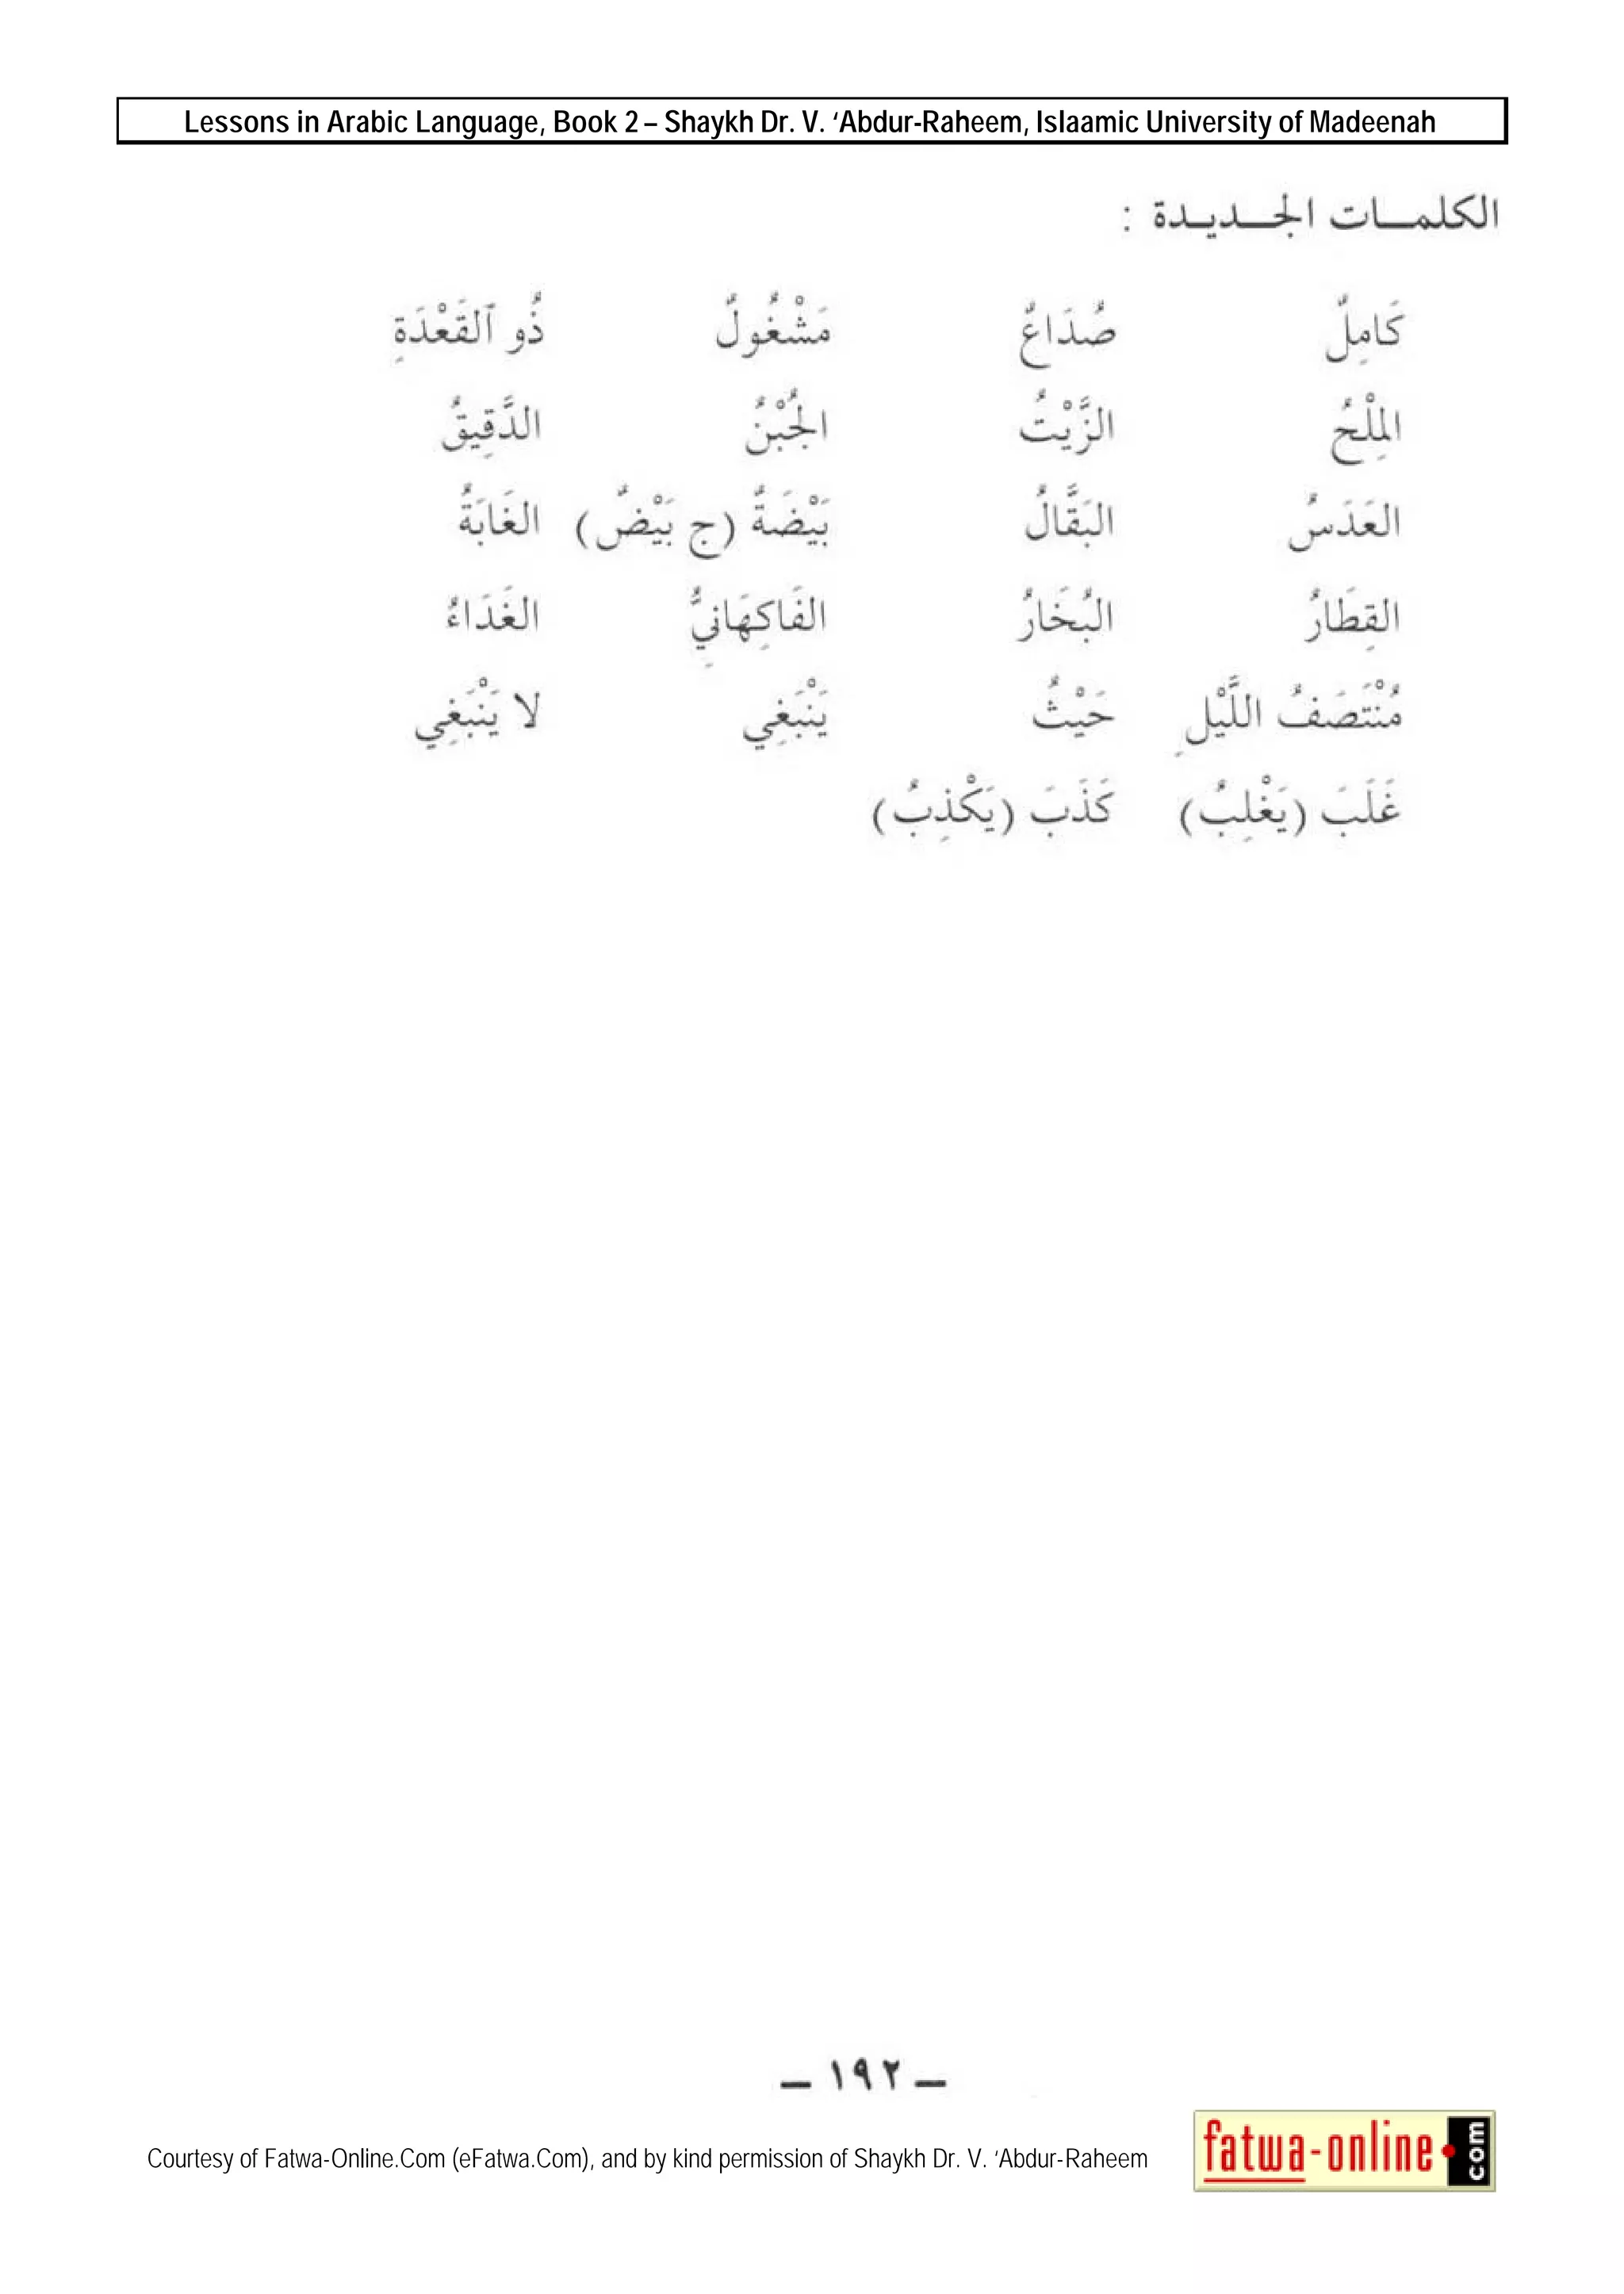 Lessons in Arabic Language, Book 2 – Shaykh Dr. V. ‘Abdur-Raheem, Islaamic University of Madeenah
الكلمـات الجـديـدة :
كَامِلٌ صُدَاعٌ مَشْغُولٌ ذُو ٱلقَعْدَةِ
المِلْحُ الزَّيْتُ الجُبْنُ الدَّقِيقُ
العَدَسُ البَقَّالُ بَيْضَةٌ (ج بَيْضٌ) الغَابَةُ
القِطَارُ البُخَارُ الفَاكِهَانِيُّ الغَدَاءُ
مُنْتَصَفُ اللَّيْلِ حَيْثُ يَنْبَغِي لا يَنْبَغِي
غَلَبَ (يَغْلِبُ) كَذَبَ (يَكْذِبُ)
– ١٩٢ –
Courtesy of Fatwa-Online.Com (eFatwa.Com), and by kind permission of Shaykh Dr. V. ‘Abdur-Raheem
fatwa-online.com